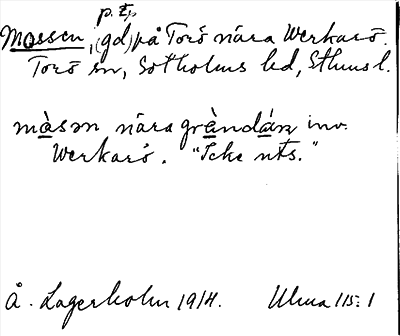 p. t.
Mossen, (gd) på Torö nära Werkarö.
Torö sn, Sotholms hd, Sthms l.
màsən nära gràndán inv.
Werkarö. "Icke uts."
Å. Lagerholm 1914. Ulma 115:1